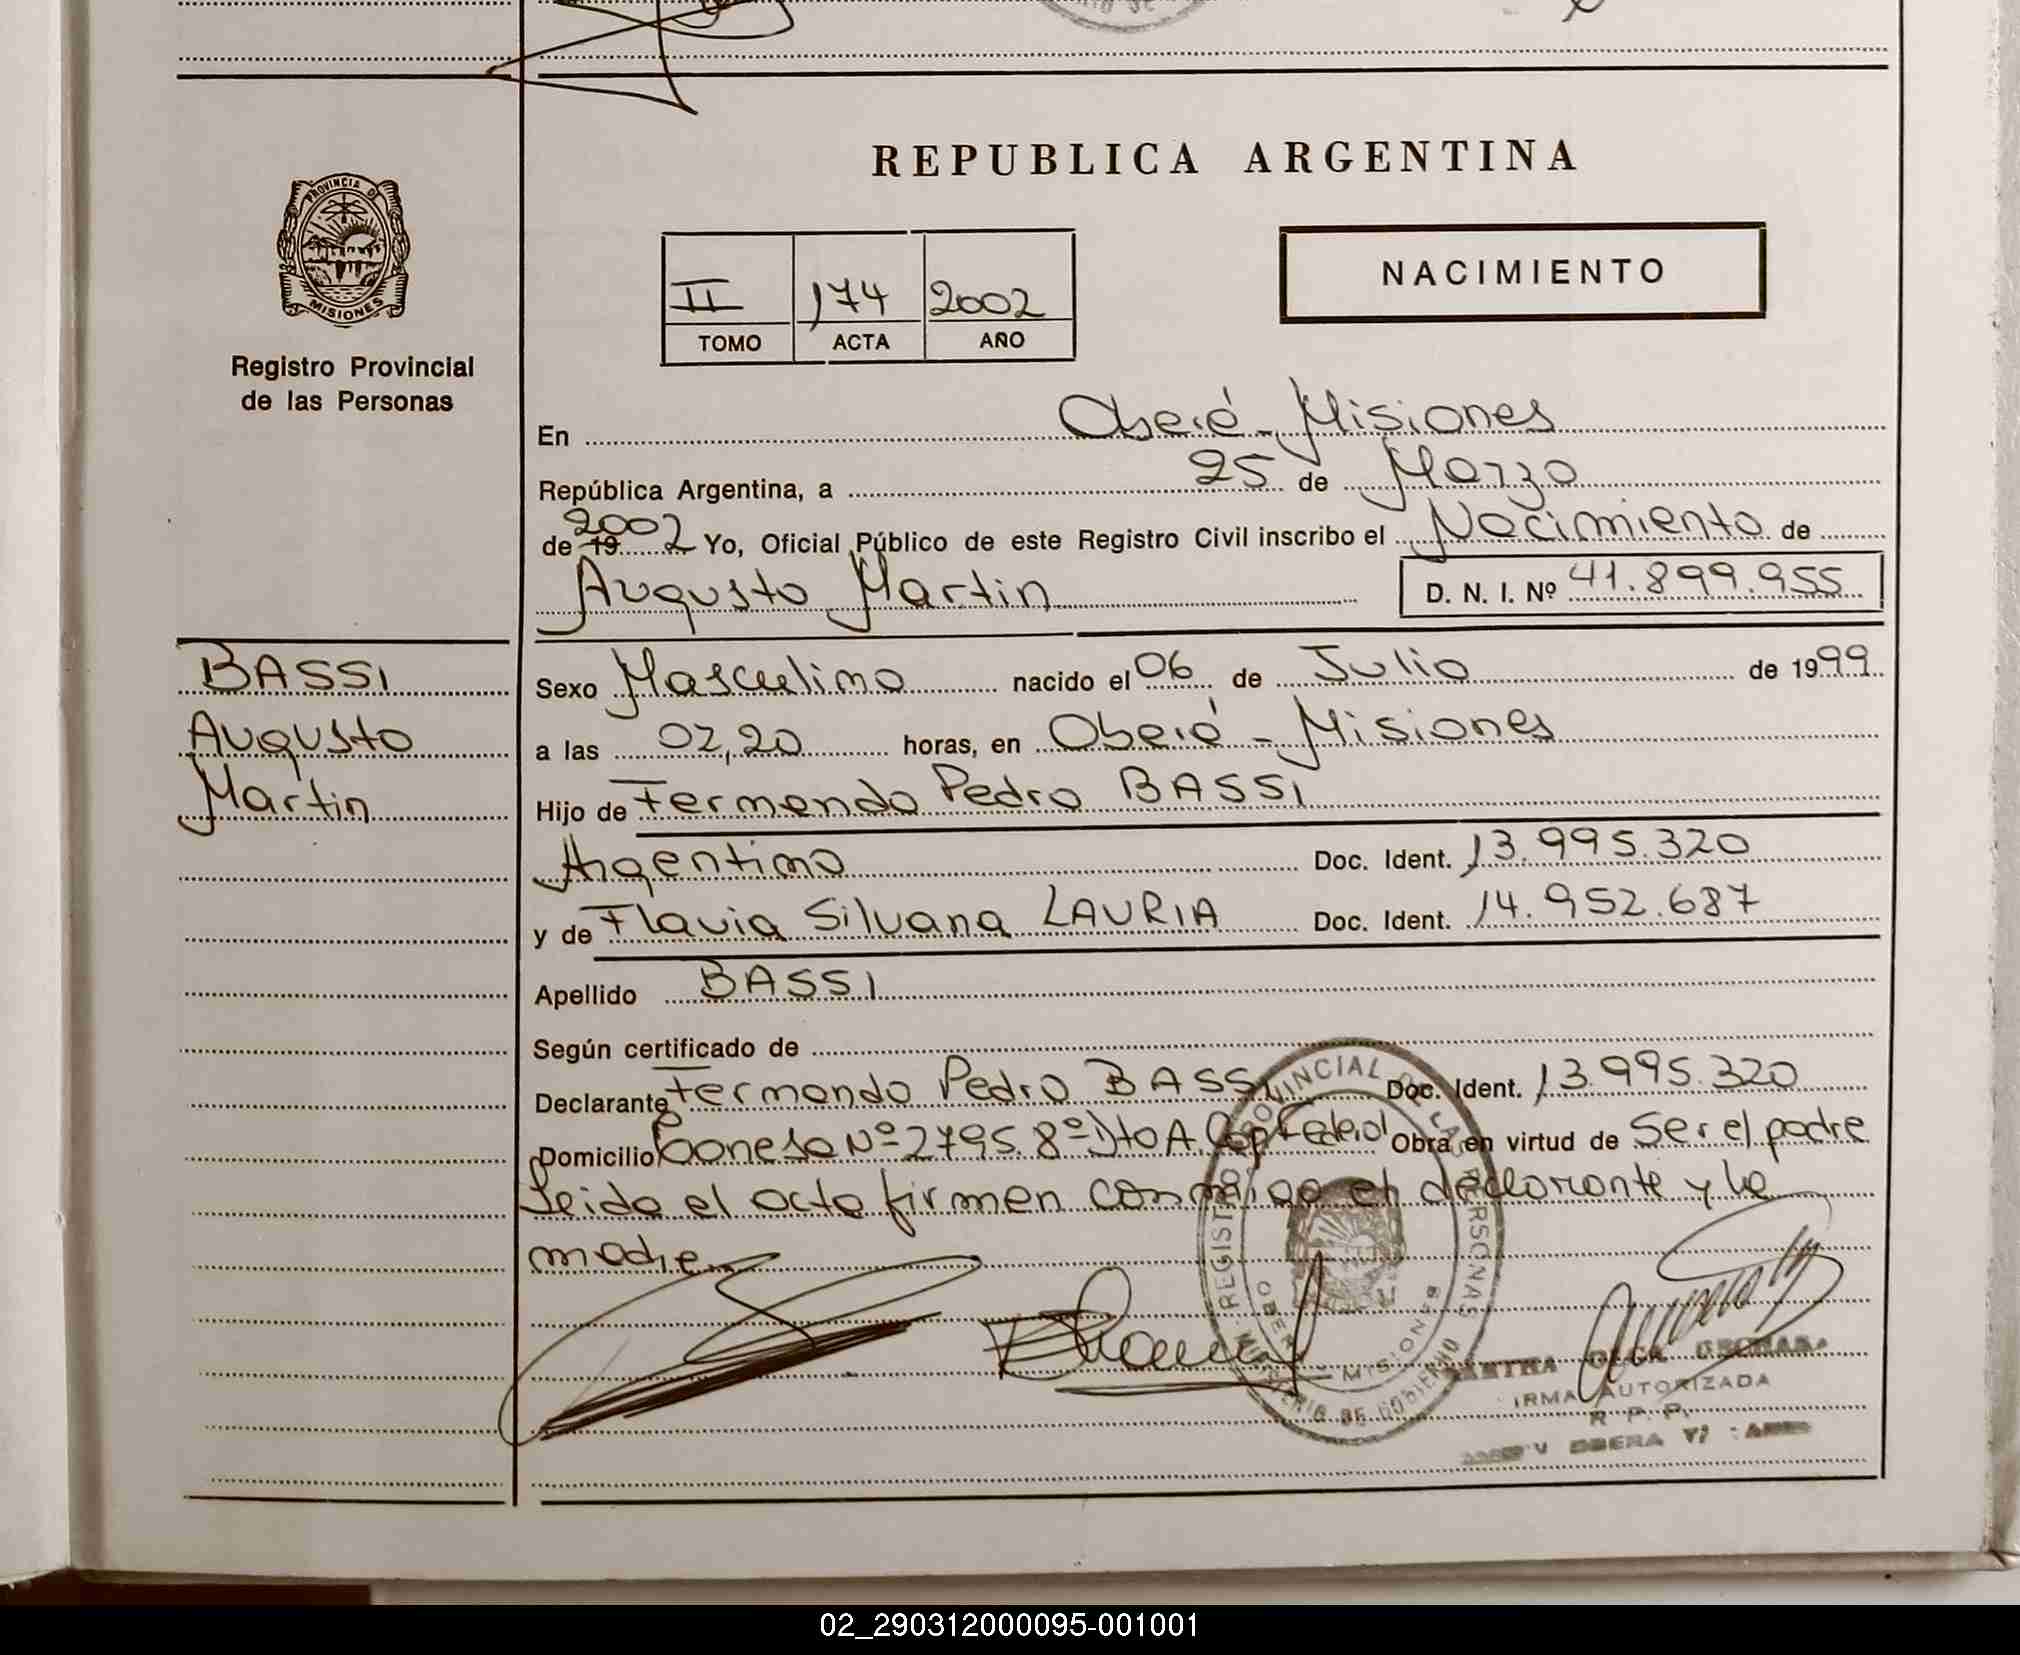 REPUBLICA ARGENTINA
PROVINCIA DE
MISIONES
Registro Provincial
de las Personas
II 174 2002
TOMO ACTA AÑO
NACIMIENTO
En Oberá - Misiones
República Argentina, a 25 de Marzo
de 19 2002 Yo, Oficial Público de este Registro Civil inscribo el Nacimiento de
Augusto Martin D. N. I. Nº 41.899.955
BASSI
Augusto
Martin
Sexo Masculino nacido el 06 de Julio de 1999
a las 02,20 horas, en Oberá - Misiones
Hijo de Fernando Pedro BASSI
Argentino Doc. Ident. 13.995.320
y de Flavia Silvana LAURIA Doc. Ident. 14.952.687
Apellido BASSI
Según certificado de
Declarante Fernando Pedro BASSI Doc. Ident. 13.995.320
Domicilio Conesa Nº 2795. 8º Dto A. Cap Federal Obra en virtud de Ser el padre
Leida el acta firman conmigo el declarante y la
madre
REGISTRO PROVINCIAL DE LAS PERSONAS
MINISTERIO DE GOBIERNO
OBERA MISIONES
OLGA
FIRMA AUTORIZADA
R. P. P.
OBERA
02_290312000095-001001